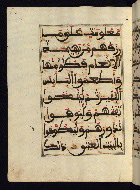 معلومت على ما
رزقهم من بهيمة
الانعم فكلوا منها
واطعموا البائس
الفقير ثم ليقضوا
تفثهم وليوفوا
نذورهم وليطوفوا
بالبيت العتيق ذلك